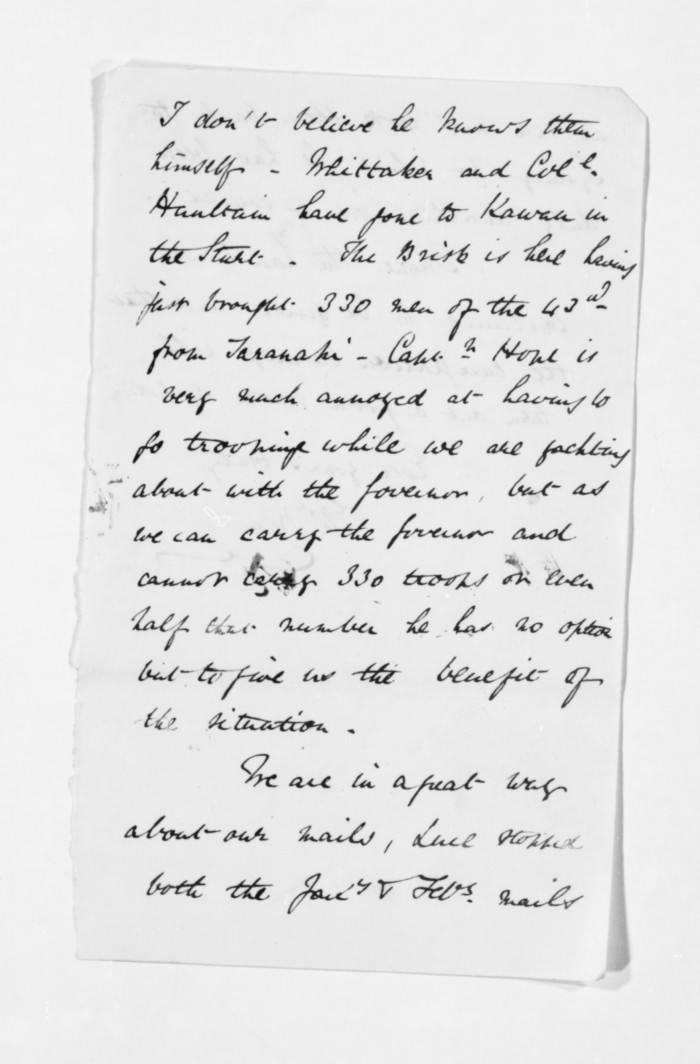 I don't believe he knows them
himself - Whittaker and Col l.
Haultain have gone to Kawau in
the Sturt. The Brisk is here having
just brought 330 men of the 43rd
from Taranaki - Captn Hope is
very much annoyed at having to
go trooping while we are yachting
about with the Governor, but as
we can carry the Governor and
cannot carry 330 troops or even
half that number he has no option
but to give us the benefit of
the situation.
We are in a great way
about our mails, Luce stopped
both the Jany & Feby. mails